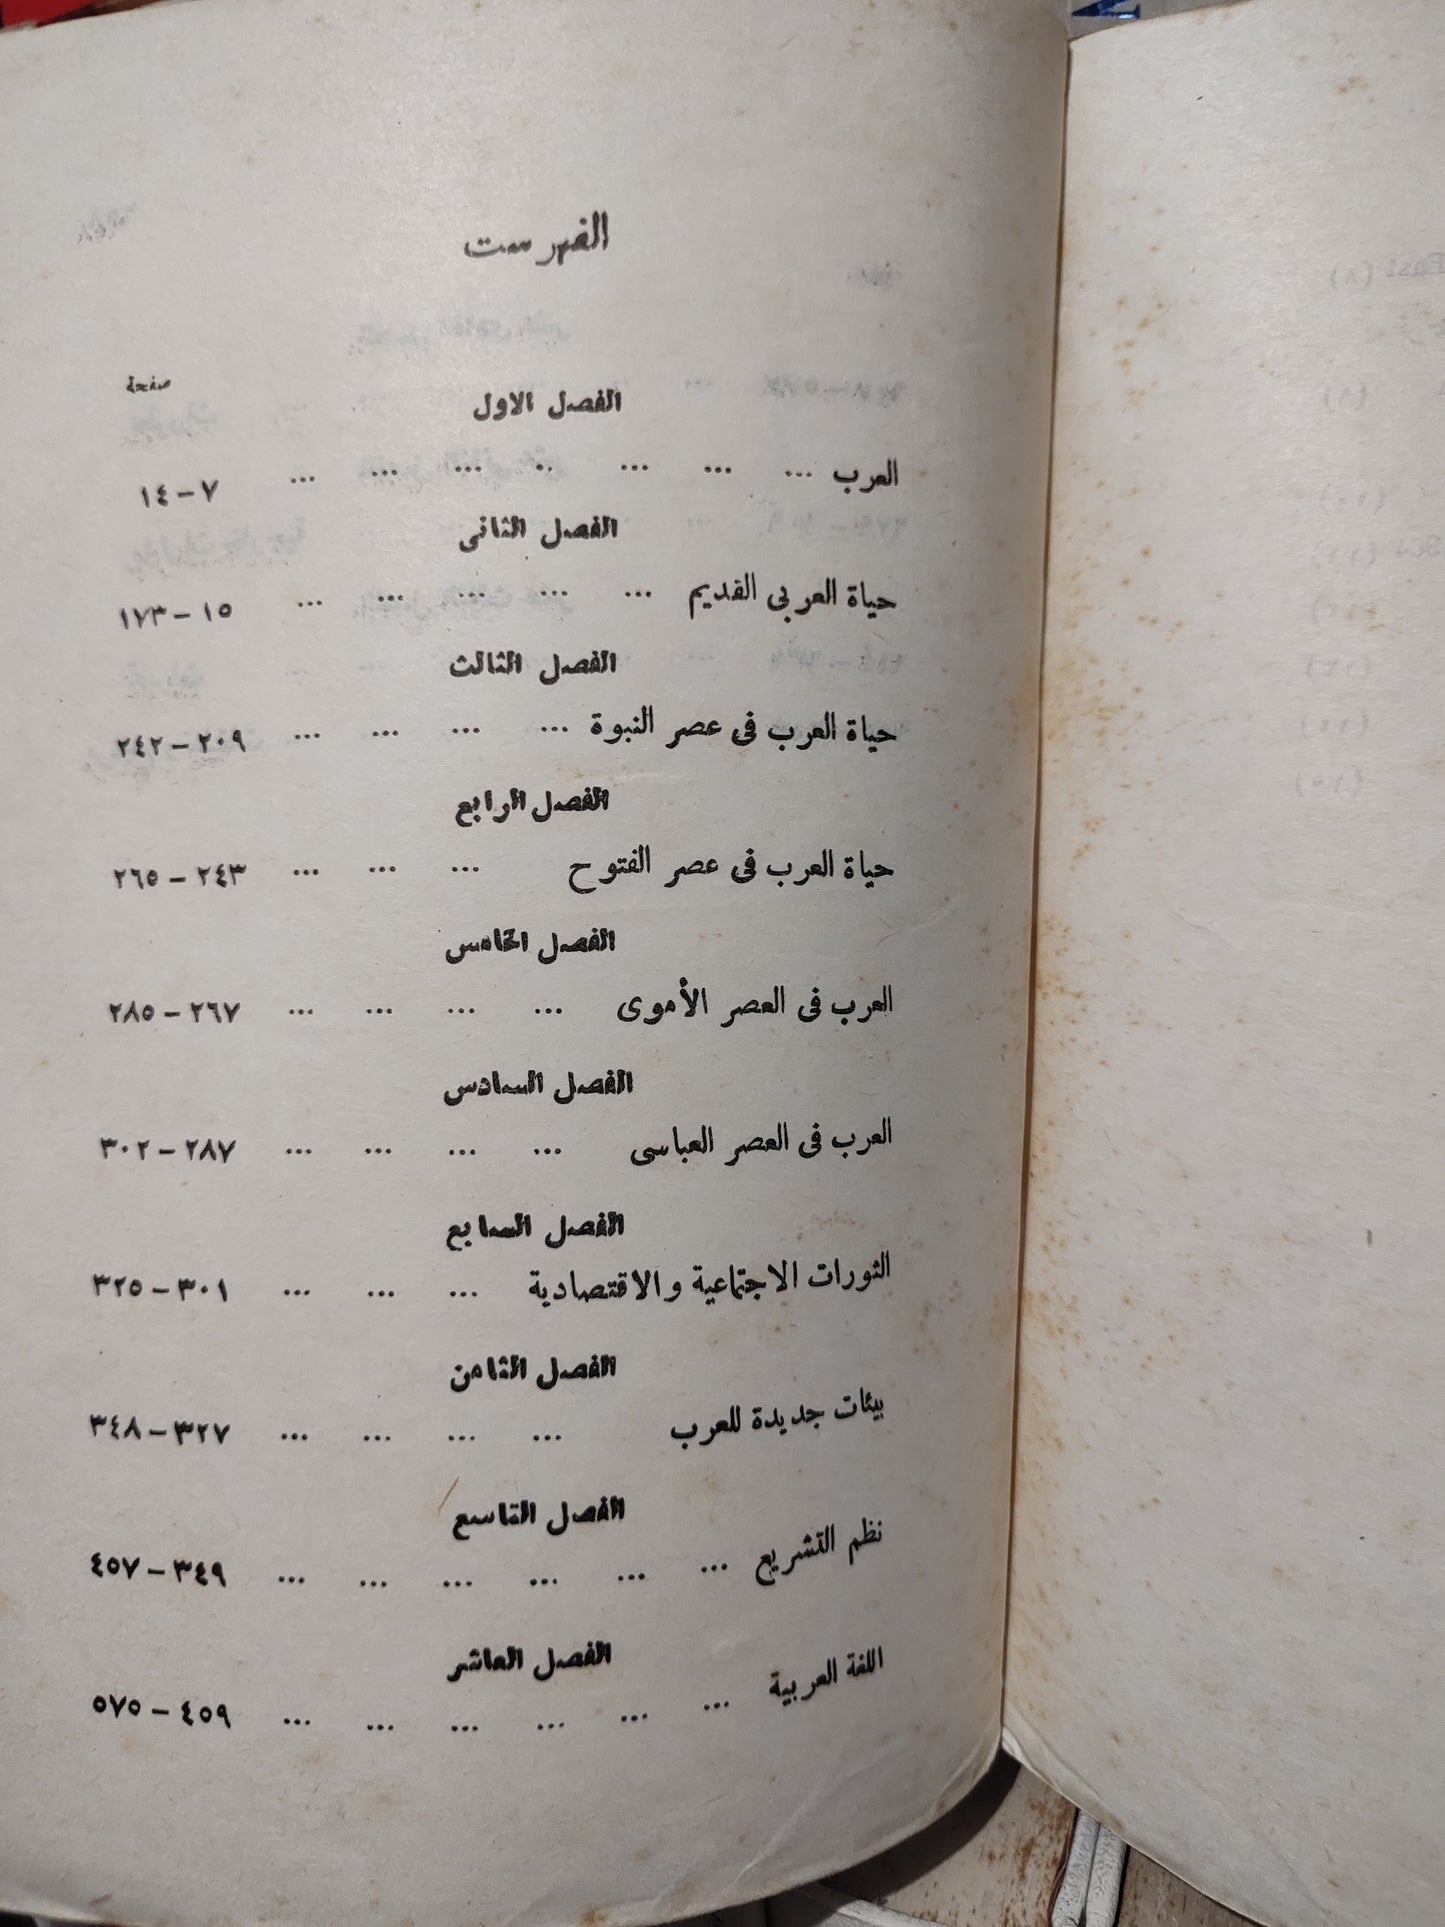 الفهرست
صفحة
الفصل الاول
العرب ... ... ... .. ... ... ... ٧ – ١٤
الفصل الثانى
حياة العربى القديم ... ... ... ... ... ١٥ – ١٧٣
الفصل الثالث
حياة العرب فى عصر النبوة ... ... ... ... ٢٠٩ – ٢٤٢
الفصل الرابع
حياة العرب فى عصر الفتوح ... ... ... ٢٤٣ – ٢٦٥
الفصل الخامس
العرب فى العصر الأموى ... ... ... ... ٢٦٧ – ٢٨٥
الفصل السادس
العرب فى العصر العباسى ... ... ... ... ٢٨٧ – ٣٠٢
الفصل السابع
الثورات الاجتماعية والاقتصادية ... ... ... ٣٠١ – ٣٢٥
الفصل الثامن
بيئات جديدة للعرب ... ... ... ... ٣٢٧ – ٣٤٨
الفصل التاسع
نظم التشريع ... ... ... ... ... ... ٣٤٩ – ٤٥٧
الفصل العاشر
اللغة العربية ... ... ... ... ... ... ٤٥٩ – ٥٧٥